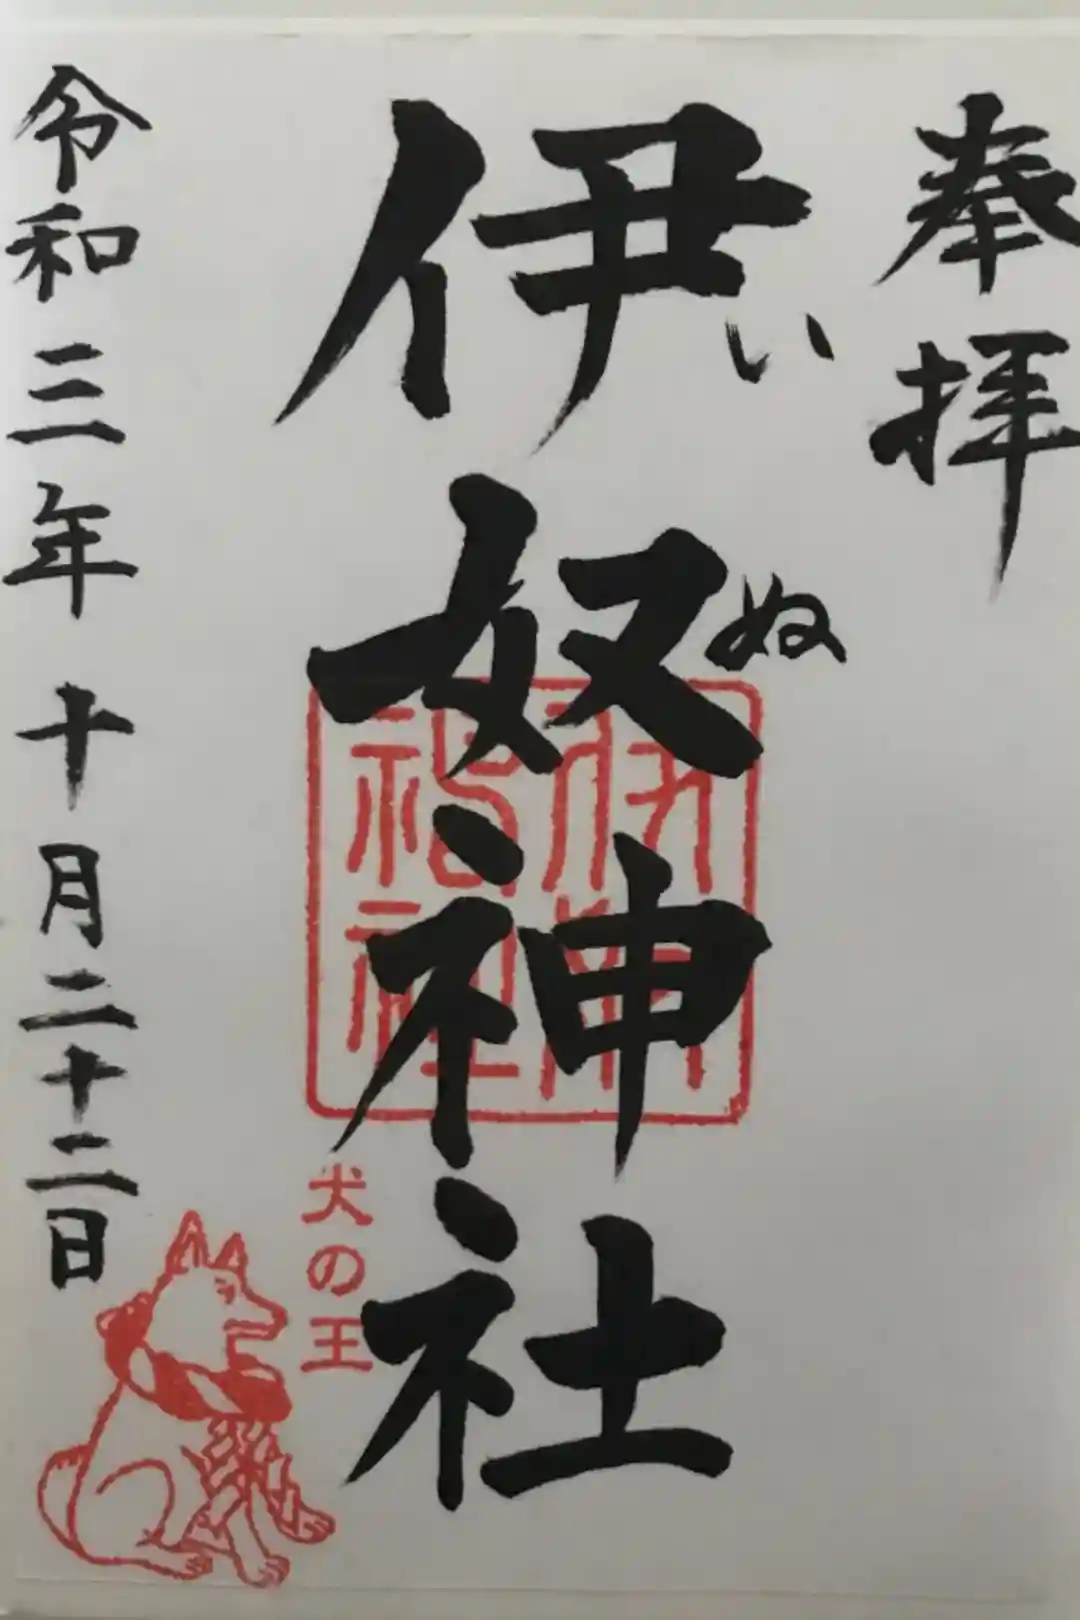 奉拝
伊奴神社
いぬ
犬の王
令和三年 十月二十二日